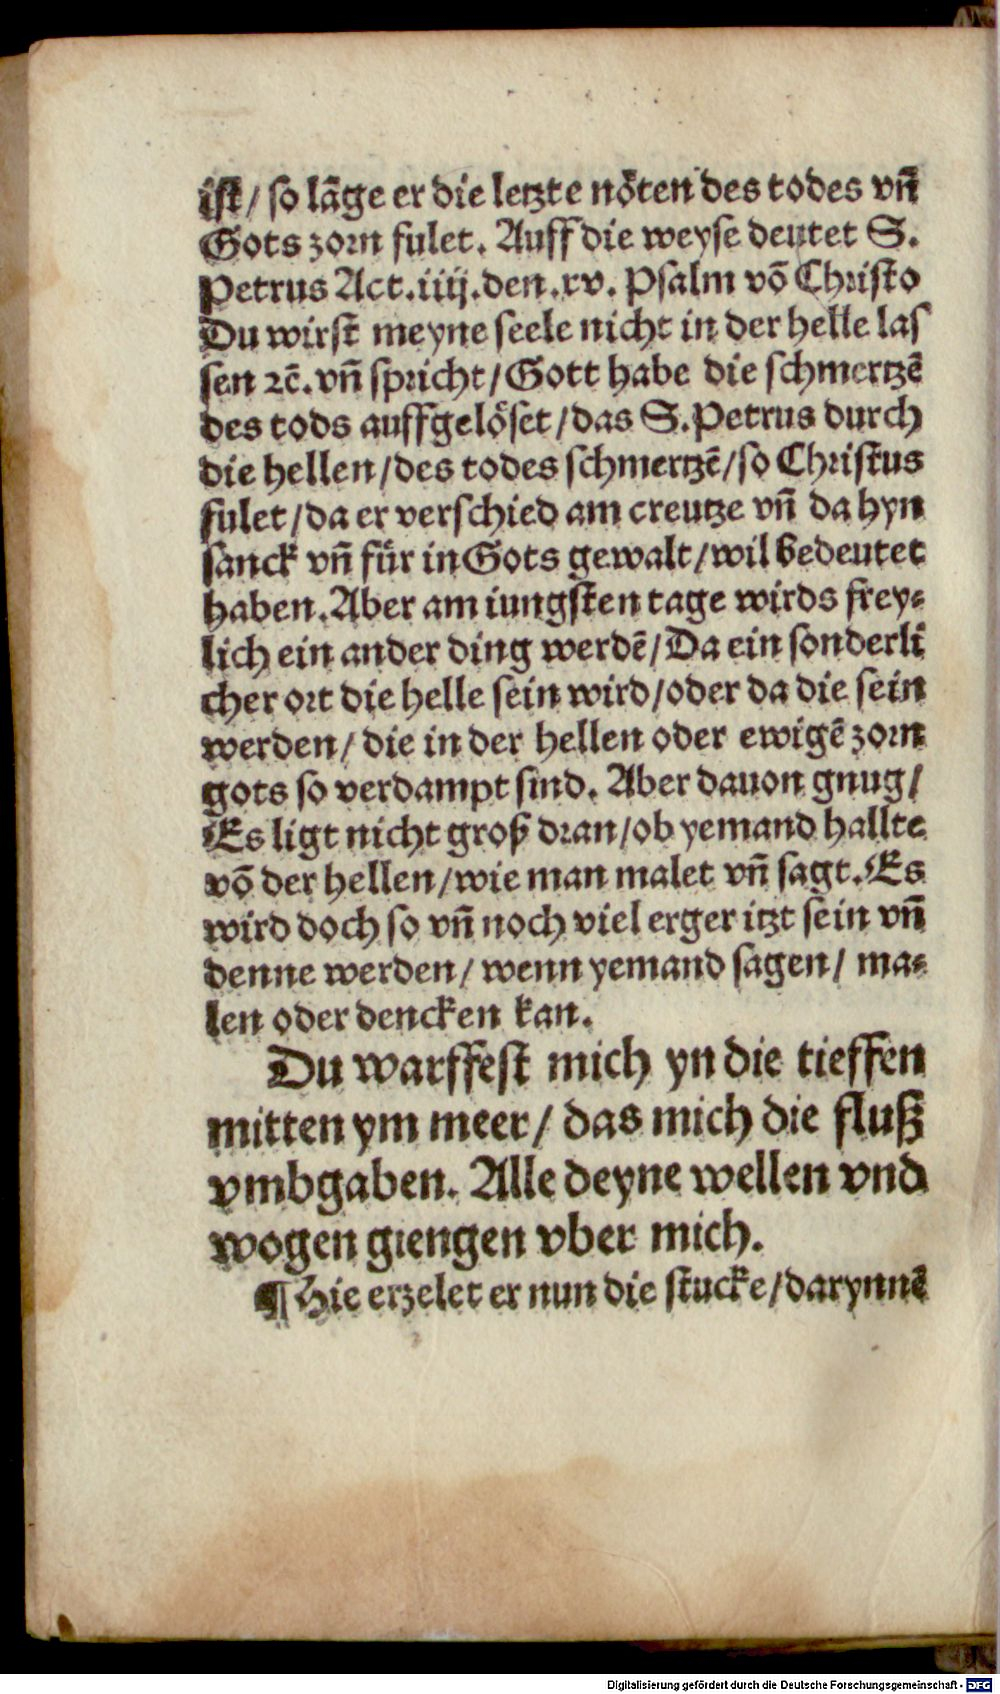 ist / so lãge er die letzte nöten des todes vñ
Gots zorn fulet. Auff die weyse deutet S.
Petrus Act. iiij. den. xv. Psalm võ Christo
Du wirst meyne seele nicht in der helle las
sen ꝛc̃. vñ spricht / Gott habe die schmertzẽ
des tods auffgelöset / das S. Petrus durch
die hellen / des todes schmertzẽ / so Christus
fulet / da er verschied am creutze vñ da hyn
sanck vñ für in Gots gewalt / wil bedeutet
haben. Aber am iungsten tage wirds frey-
lich ein ander ding werdẽ / Da ein sonderli
cher ort die helle sein wird / oder da die sein
werden / die in der hellen oder ewigẽ zorn
gots so verdampt sind. Aber dauon gnug /
Es ligt nicht groß dran / ob yemand hallte
võ der hellen / wie man malet vñ sagt. Es
wird doch so vñ noch viel erger itzt sein vñ
denne werden / wenn yemand sagen / ma-
len oder dencken kan.
Du warffest mich yn die tieffen
mitten ym meer / das mich die fluß
vmbgaben. Alle deyne wellen vnd
wogen giengen vber mich.
¶ Hie erzelet er nun die stucke / darynnẽ
Digitalisierung gefördert durch die Deutsche Forschungsgemeinschaft - DFG